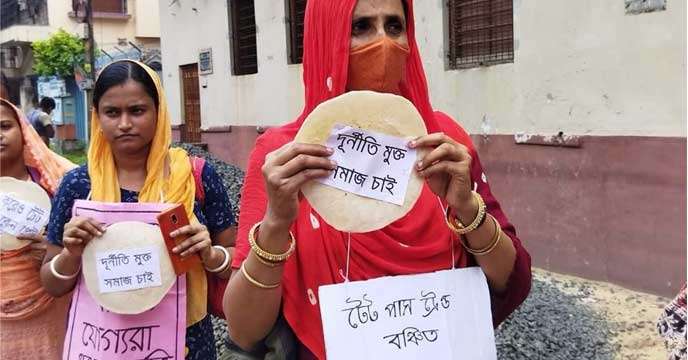 দূর্নীতি মুক্ত
সমাজ চাই
যোগ্যরা
দূর্নীতি মুক্ত
সমাজ চাই
টেট পাস ট্রেন্ড
বঞ্চিত